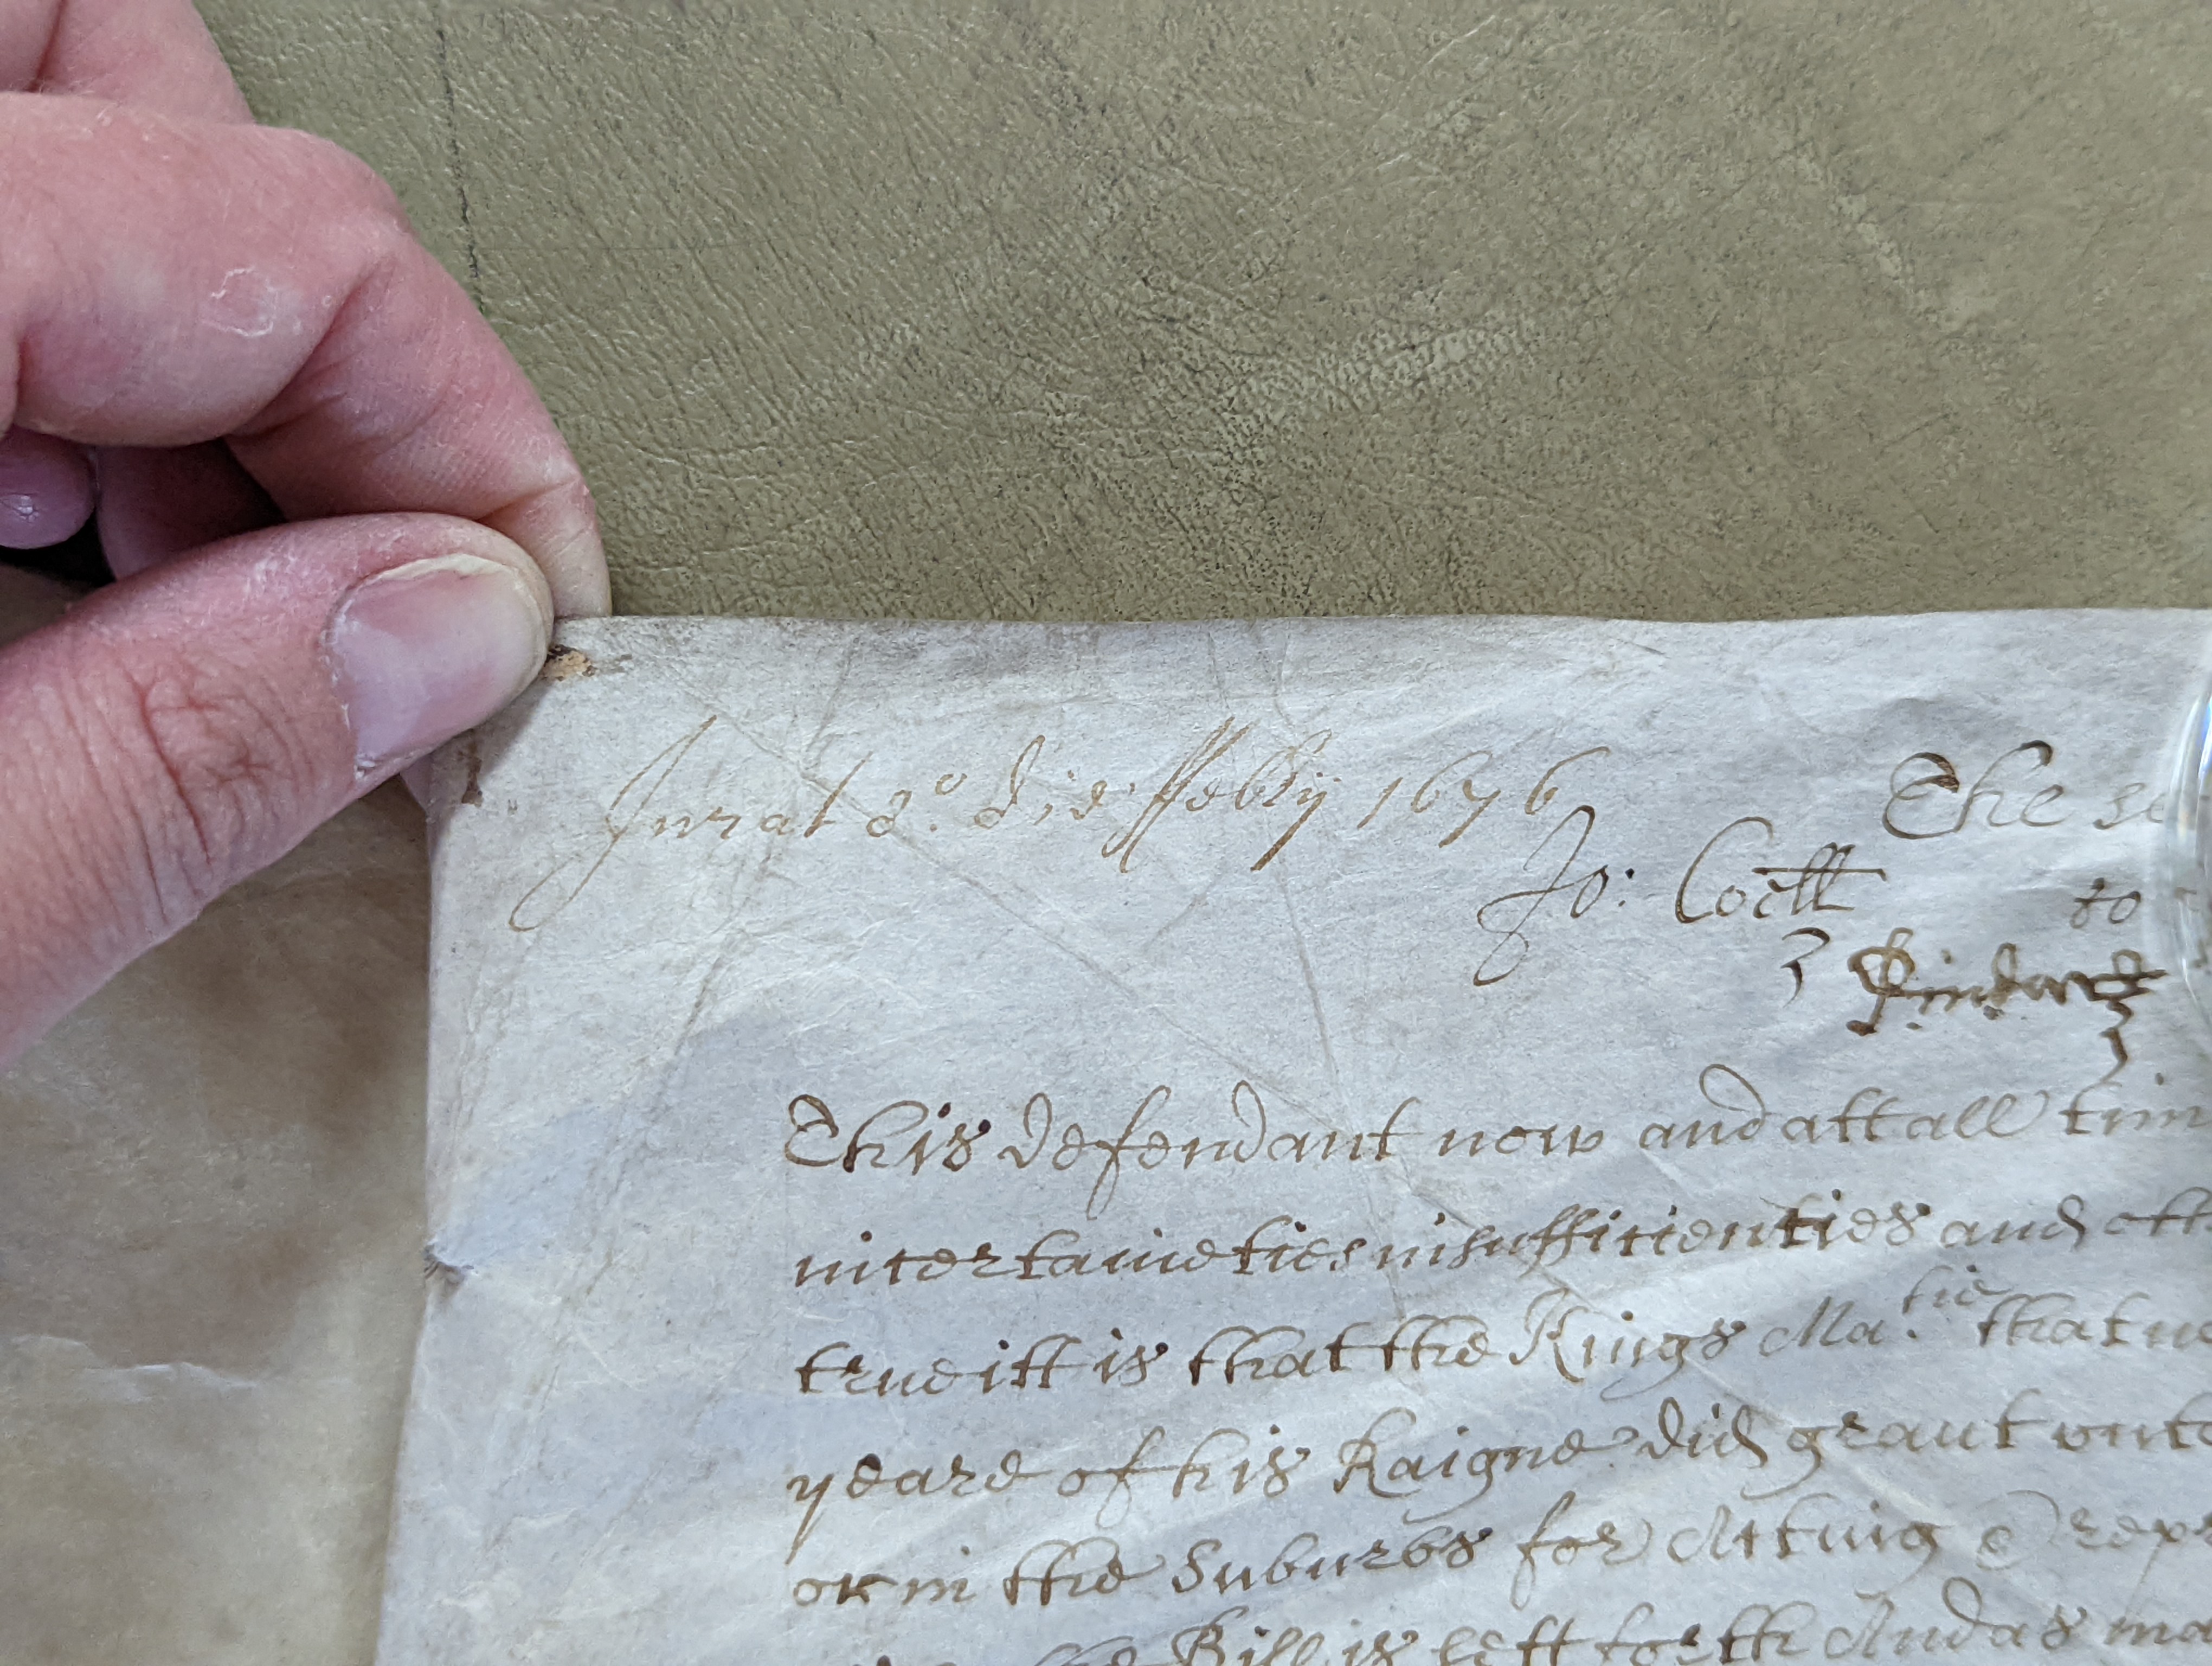 Jurat 8.o die ffebry 1676
The se
Jo: Coell
to
This defendant now and att all tim
incertaineties insufficienties and oth
true itt is that the Kings Ma.tie that n
yeare of his Raigne did grant vnto
or in the Suburbs for Acting & rep
the Bill is sett forth And as ma